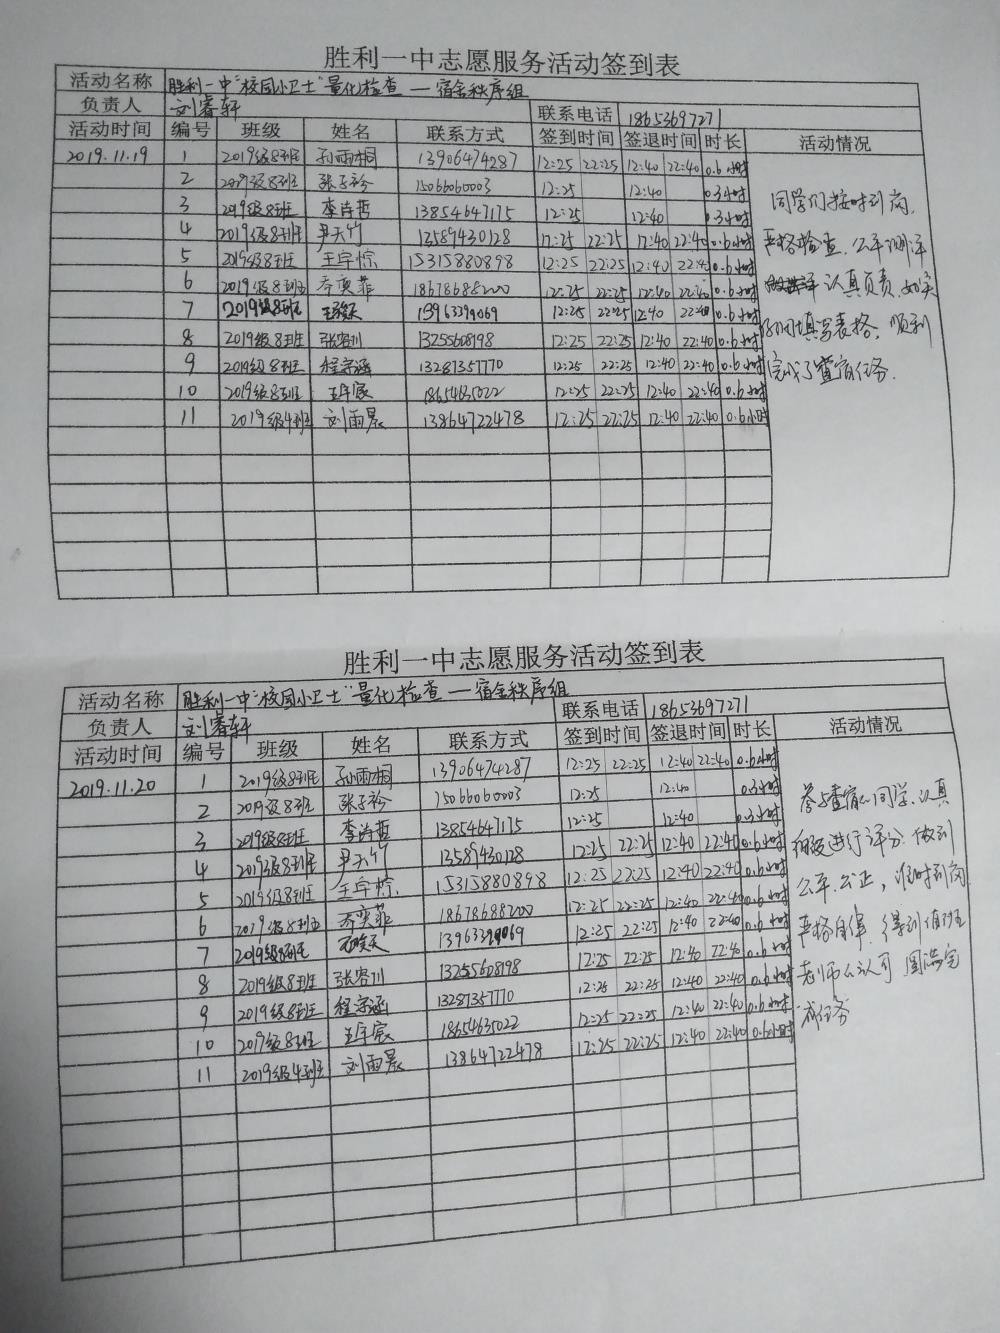 胜利一中志愿服务活动签到表
活动名称 胜利一中"校园小卫士"量化检查—宿舍秩序组
负责人 刘睿轩 联系电话 18653697271
活动时间 编号 班级 姓名 联系方式 签到时间 签退时间 时长 活动情况
2019.11.19 1 2019级8班 孙雨桐 13906474287 12:25 22:25 12:40 22:40 0.6小时
2 2019级8班 张子衿 15066060003 12:25 12:40 0.3小时
3 2019级8班 李诗哲 13854647175 12:25 12:40 0.3小时
4 2019级8班 尹天竹 13589430128 12:25 22:25 12:40 22:40 0.6小时
5 2019级8班 王宇悰 15315880898 12:25 22:25 12:40 22:40 0.6小时
6 2019级8班 齐奕菲 18678688200 12:25 22:25 12:40 22:40 0.6小时
7 2019级8班 13963399069 12:25 22:25 12:40 22:40 0.6小时
8 2019级8班 张容川 13255608198 12:25 22:25 12:40 22:40 0.6小时
9 2019级8班 程宇涵 13287357770 12:25 22:25 12:40 22:40 0.6小时
10 2019级8班 王宇宸 18654635022 12:25 22:25 12:40 22:40 0.6小时
11 2019级4班 刘雨晨 13864722478 12:25 22:25 12:40 22:40 0.6小时
同学们按时到岗,
严格检查,公平测评
认真负责,如实
填写表格,顺利
完成了查宿任务.
胜利一中志愿服务活动签到表
活动名称 胜利一中"校园小卫士"量化检查—宿舍秩序组
负责人 刘睿轩 联系电话 18653697271
活动时间 编号 班级 姓名 联系方式 签到时间 签退时间 时长 活动情况
2019.11.20 1 2019级8班 孙雨桐 13906474287 12:25 22:25 12:40 22:40 0.6小时
2 2019级8班 张子衿 15066060003 12:25 12:40 0.3小时
3 2019级8班 李诗哲 13854647175 12:25 12:40 0.3小时
4 2019级8班 尹天竹 13589430128 12:25 22:25 12:40 22:40 0.6小时
5 2019级8班 王宇悰 15315880898 12:25 22:25 12:40 22:40 0.6小时
6 2019级8班 齐奕菲 18678688200 12:25 22:25 12:40 22:40 0.6小时
7 2019级8班 13963399069 12:25 22:25 12:40 22:40 0.6小时
8 2019级8班 张容川 13255608198 12:25 22:25 12:40 22:40 0.6小时
9 2019级8班 程宇涵 13287357770 12:25 22:25 12:40 22:40 0.6小时
10 2019级8班 王宇宸 18654635022 12:25 22:25 12:40 22:40 0.6小时
11 2019级4班 刘雨晨 13864722478 12:25 22:25 12:40 22:40 0.6小时
参与查宿的同学,认真
细致进行评分,做到
公平、公正,准时到岗
严格自律,得到值班
老师的认可,圆满完
成任务